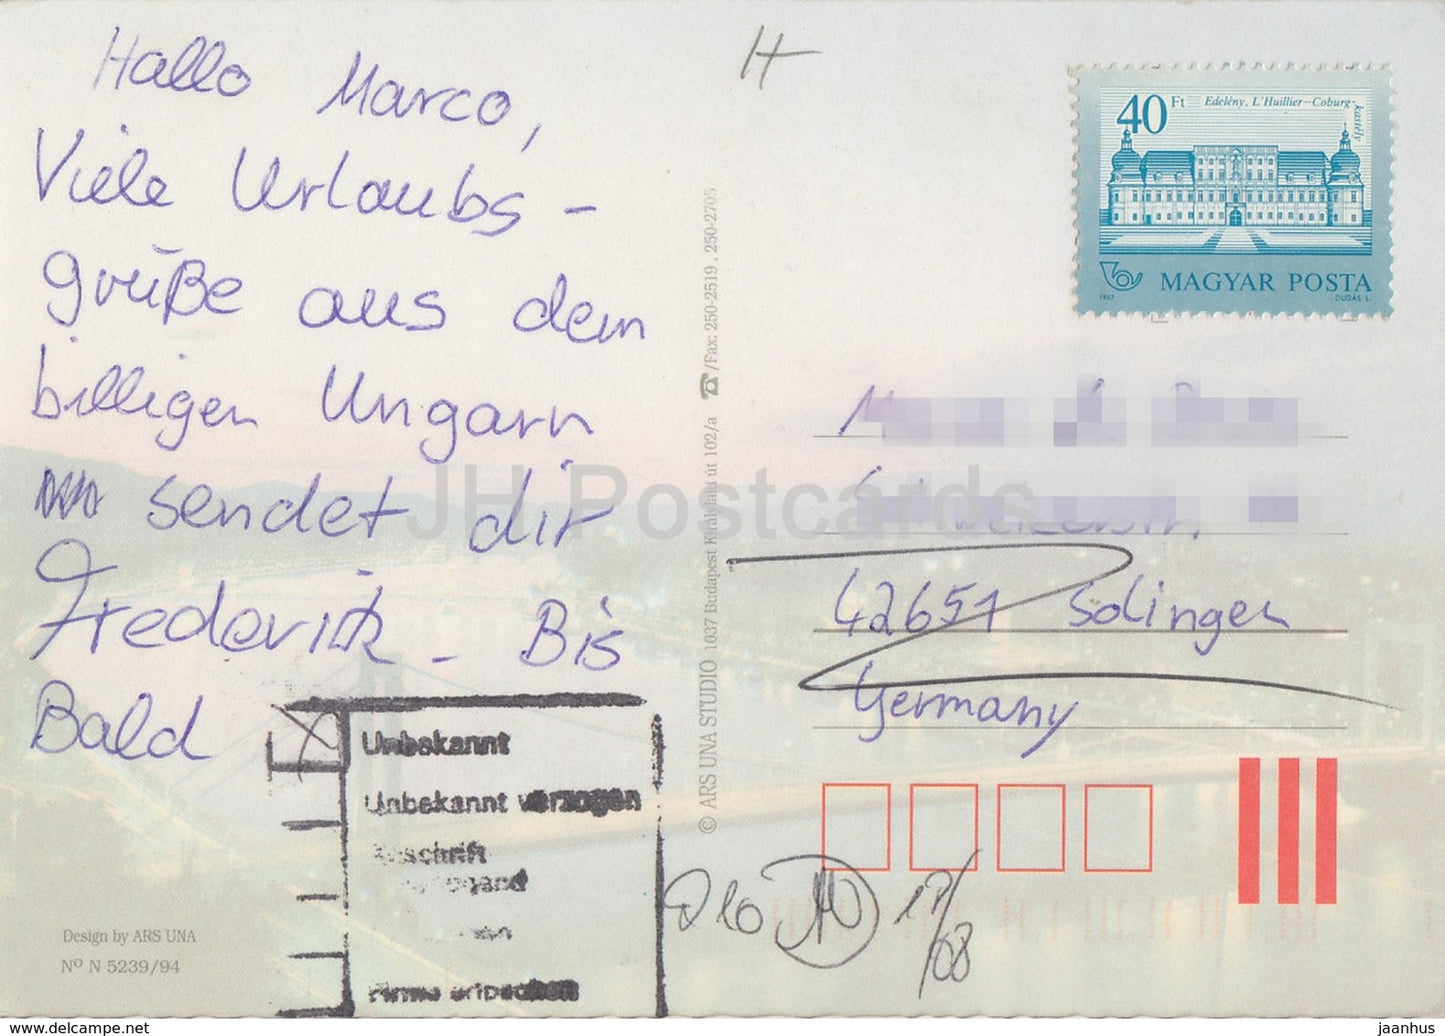 Hallo Marco,
Viele Urlaubs-
grüße aus dem
billigen Ungarn
sendet dir
Frederik - Bis
Bald
H
40 Ft
Edelény, L'Huillier-Coburg-
kastély
MAGYAR POSTA
1987
DUGÁS L.
42651 Solingen
Germany
© ARS UNA STUDIO 1037 Budapest Királylaki út 102/a ☎/Fax: 250-2519, 250-2705
Unbekannt
Unbekannt verzogen
Firma erloschen
Design by ARS UNA
Nº N 5239/94
JH Postcards
www.delcampe.net
jaanhus